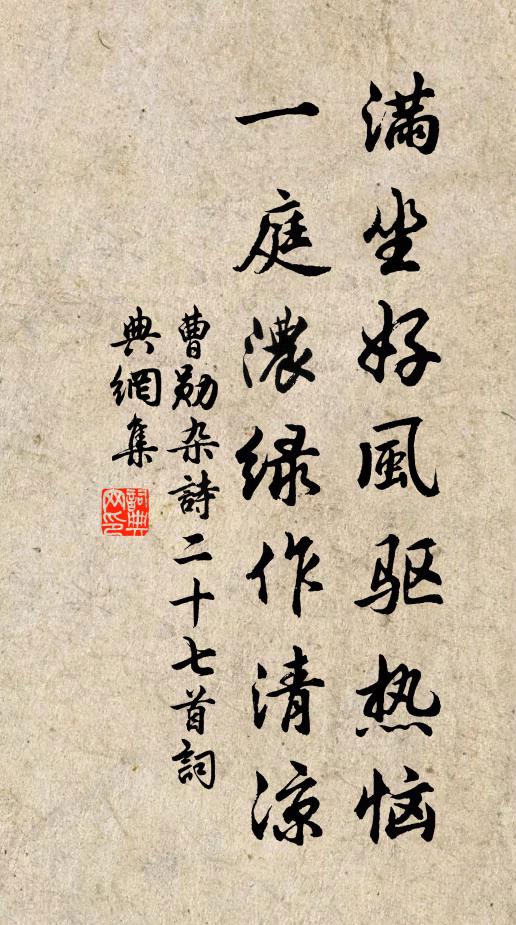 满坐好風驱热恼
一庭濃绿作清凉
曹勛杂詩二十七首詞
典網集
詞典网印